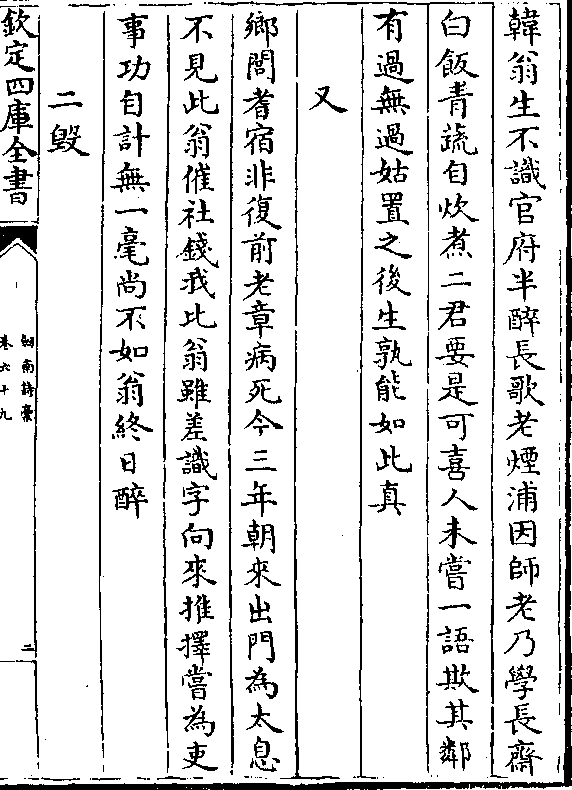 韓翁生不識官府半醉長歌老煙浦因師老乃學長齋
白飯青蔬自炊煮二君要是可喜人未嘗一語欺其鄰
有過無過姑置之後生孰能如此真
又
鄉閭耆宿非復前老章病死今三年朝來出門為太息
不見此翁催社錢我比翁雖差識字向來推擇嘗為吏
事功自計無一毫尚不如翁終日醉
二毀
欽定四庫全書
劍南詩藁
卷六十九
二